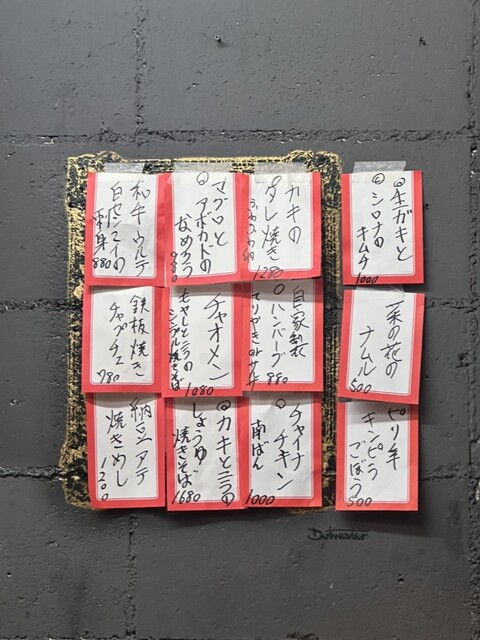 ◎生ガキと
シロナの
キムチ
1000
カキの
タレ焼き
1280
マグロと
アボカドの
なめろう
980
和牛ウルテ
白センマイの
刺身
880
菜の花の
ナムル
500
自家製
ハンバーグ
てりやきor
880
チャオメン
もやしとニラの
シンプル焼そば
1080
鉄板焼き
チャプチェ
780
ピリ辛
キンピラ
ごぼう
500
チャイナ
チキン
南ばん
1000
◎カキとニラの
しょうゆ
焼きそば
1680
納豆アテ
焼きめし
1200